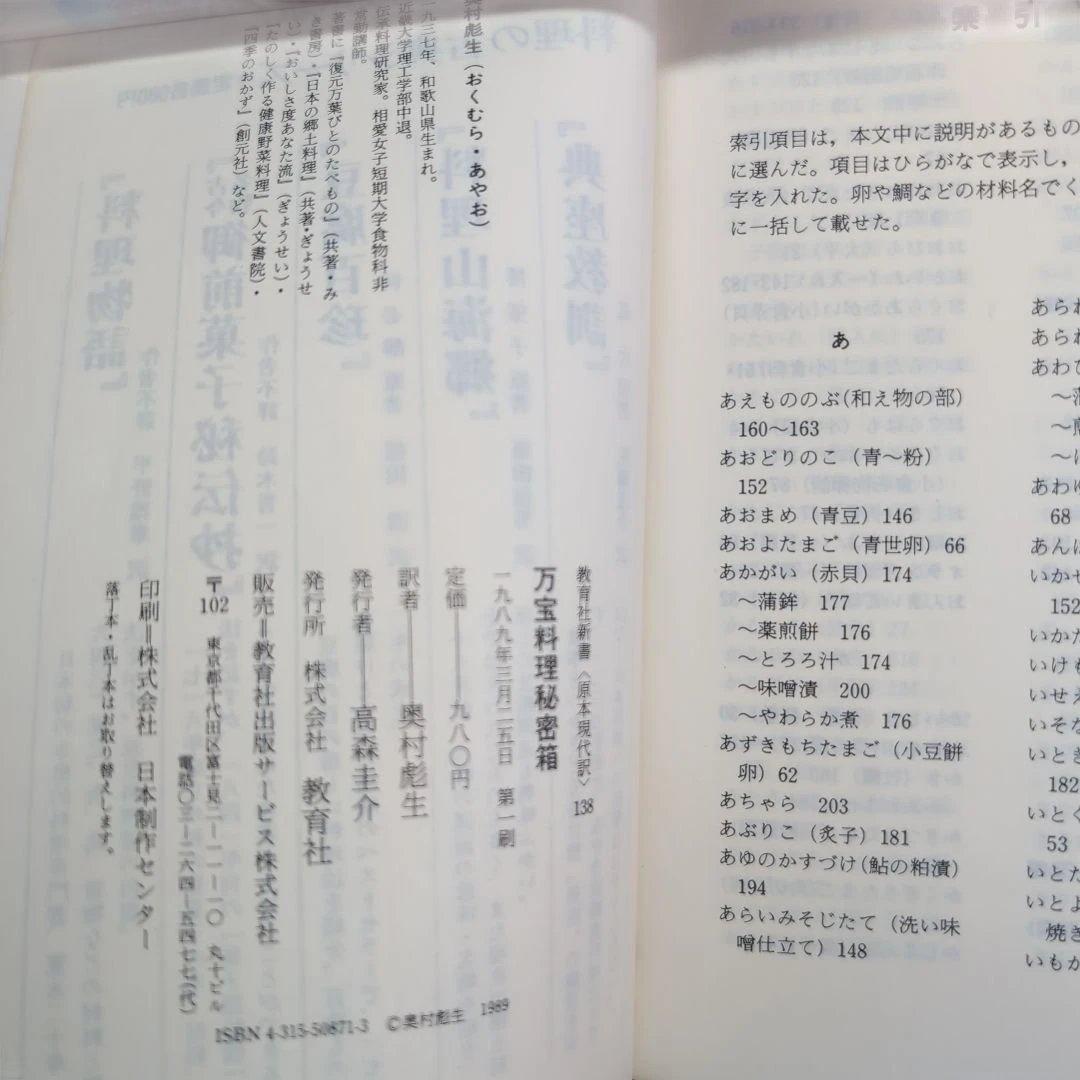 奥村彪生（おくむら・あやお）
一九三七年、和歌山県生まれ。
近畿大学理工学部中退。
伝承料理研究家。相愛女子短期大学食物科非
常勤講師。
著書に『復元万葉びとのたべもの』（共著・み
き書房）・『日本の郷土料理』（共著・ぎょうせ
い）・『おいしさ度あなた流』（ぎょうせい）・
『たのしく作る健康野菜料理』（人文書院）・
『四季のおかず』（創元社）など。
教育社新書〈原本現代訳〉138
万宝料理秘密箱
一九八九年三月二五日　第一刷
定価――九八〇円
訳者――奥村彪生
発行者――高森圭介
発行所　株式会社　教育社
販売＝教育社出版サービス株式会社
〒102　東京都千代田区富士見二―一一―一〇　丸十ビル
電話〇三―二六四―五四七七（代）
印刷＝株式会社　日本制作センター
落丁本・乱丁本はお取り替えします。
ISBN 4-315-50871-3　©奥村彪生　1989
索引
索引項目は，本文中に説明があるもの
に選んだ。項目はひらがなで表示し，
字を入れた。卵や鯛などの材料名でく
に一括して載せた。
あ
あえもののぶ（和え物の部）
160〜163
あおどりのこ（青〜粉）
152
あおまめ（青豆）146
あおよたまご（青世卵）66
あかがい（赤貝）174
〜蒲鉾　177
〜薬煎餅　176
〜とろろ汁　174
〜味噌漬　200
〜やわらか煮　176
あずきもちたまご（小豆餅
卵）62
あちゃら　203
あぶりこ（炙子）181
あゆのかすづけ（鮎の粕漬）
194
あらいみそじたて（洗い味
噌仕立て）148
あられ
あられ
あわび
〜
〜
〜
あわゆ
68
あんば
いかせ
152
いかだ
いけも
いせえ
いそな
いとき
182
いとく
53
いとた
いとよ
焼き
いもか